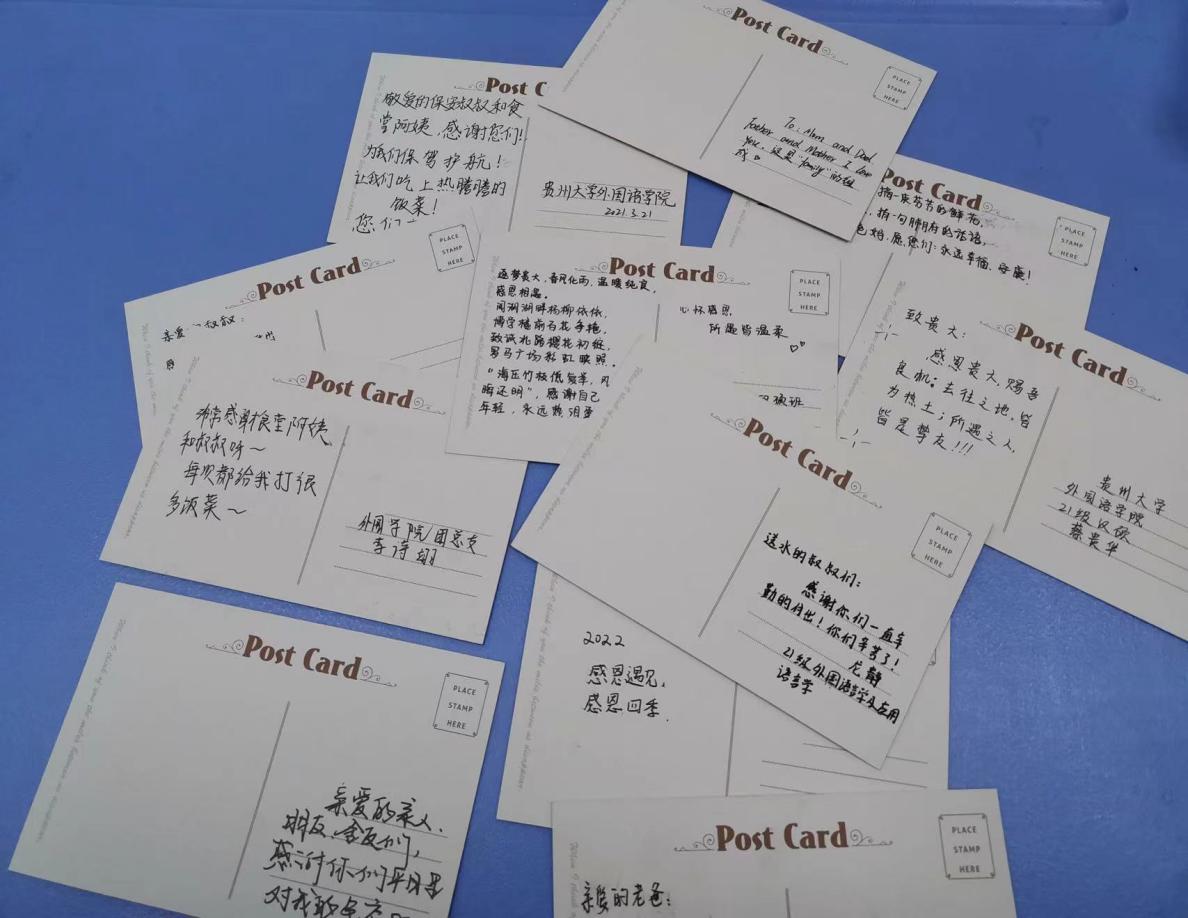 Post Card
PLACE
STAMP
HERE
To: Mum and Dad.
Father and Mother I love
You. 这是"family"的组
成
Post C
敬爱的保安叔叔和食
堂阿姨,感谢您们!
为我们保驾护航!
让我们吃上热腾腾的
饭菜!
您们一
贵州大学外国语学院
2021.3.21
Post Card
PLACE
STAMP
HERE
摘一束芬芳的鲜花,
,摘一句肺腑的话语,
妈,愿您们:永远幸福、安康!
Post Card
PLACE
STAMP
HERE
亲爱 叔叔:
Post Card
PLACE
STAMP
HERE
逐梦贵大,春风化雨,温暖纯良,
感恩相遇。
阅湖湖畔杨柳依依,
博学楼前百花争艳,
致诚北路樱花初绽,
思马广场彩虹映照。
"海压竹枝低复举,风
晦还明",感谢自己
年轻,永远热泪盈
心怀感恩,
所遇皆温柔
班
Post Card
致贵大:
感恩贵大,赐吾
良机;去往之地,皆
为热土;所遇之人,
皆是挚友!!!
贵州大学
外国语学院
21级汉硕
蔡贵华
Post Card
非常感谢食堂阿姨
和叔叔呀~
每次都给我打很
多饭菜~
外国语学院团总支
李诗翊
Post Card
PLACE
STAMP
HERE
送水的叔叔们:
感谢你们一直辛
勤的付出!你们辛苦了!
龙静
21级外国语言学及应用
语言学
2022
感恩遇见,
感恩四季.
Post Card
PLACE
STAMP
HERE
亲爱的亲人、
朋友、舍友们,
感谢你们平日里
对我的
Post Card
PLACE
STAMP
HERE
亲爱的老爸: